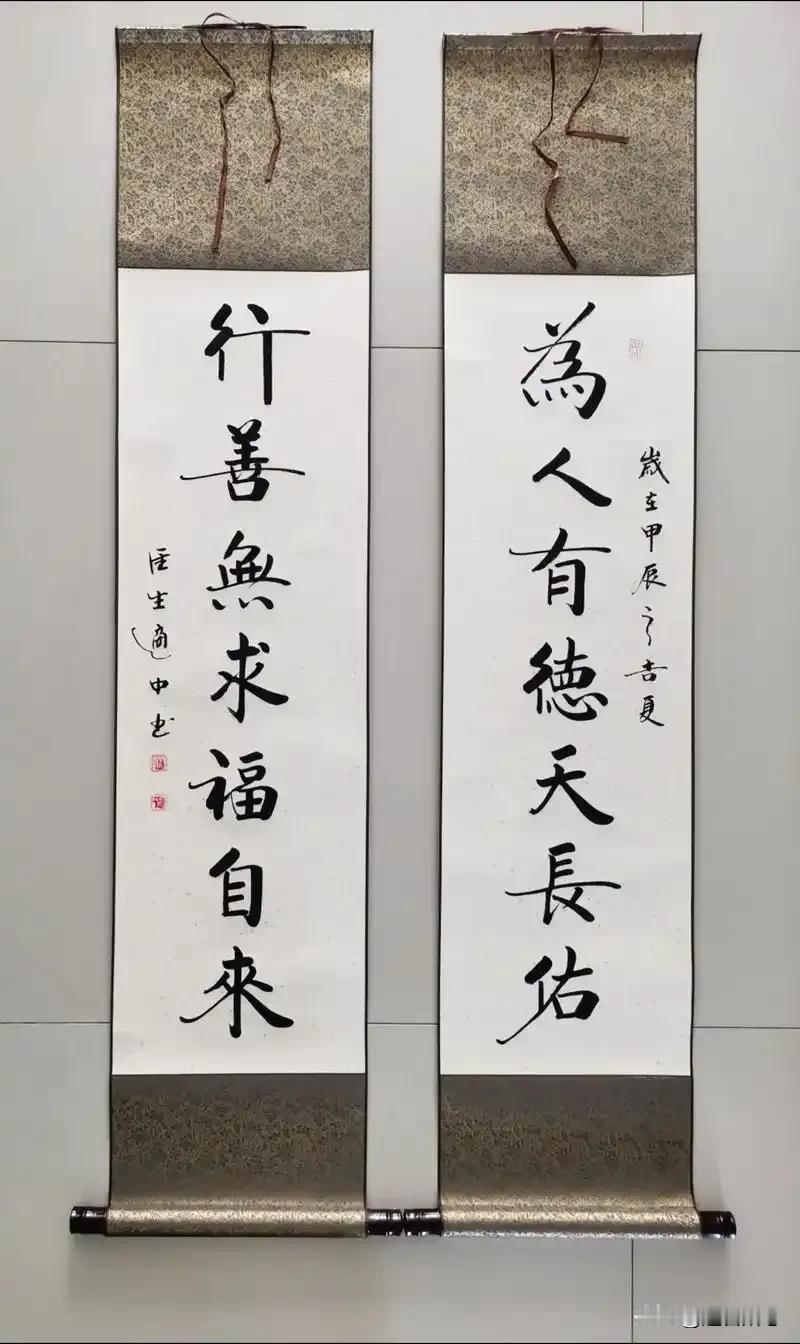 歲在甲辰之吉夏
為人有德天長佑
行善無求福自來
生適中书